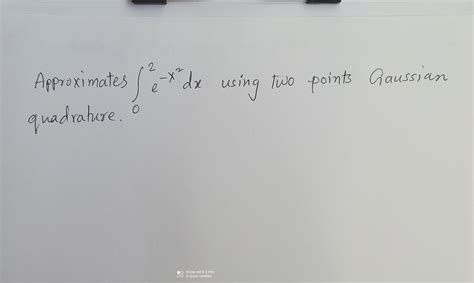 Approximates ∫₀² e^{-x²} dx using two points Gaussian
quadrature.